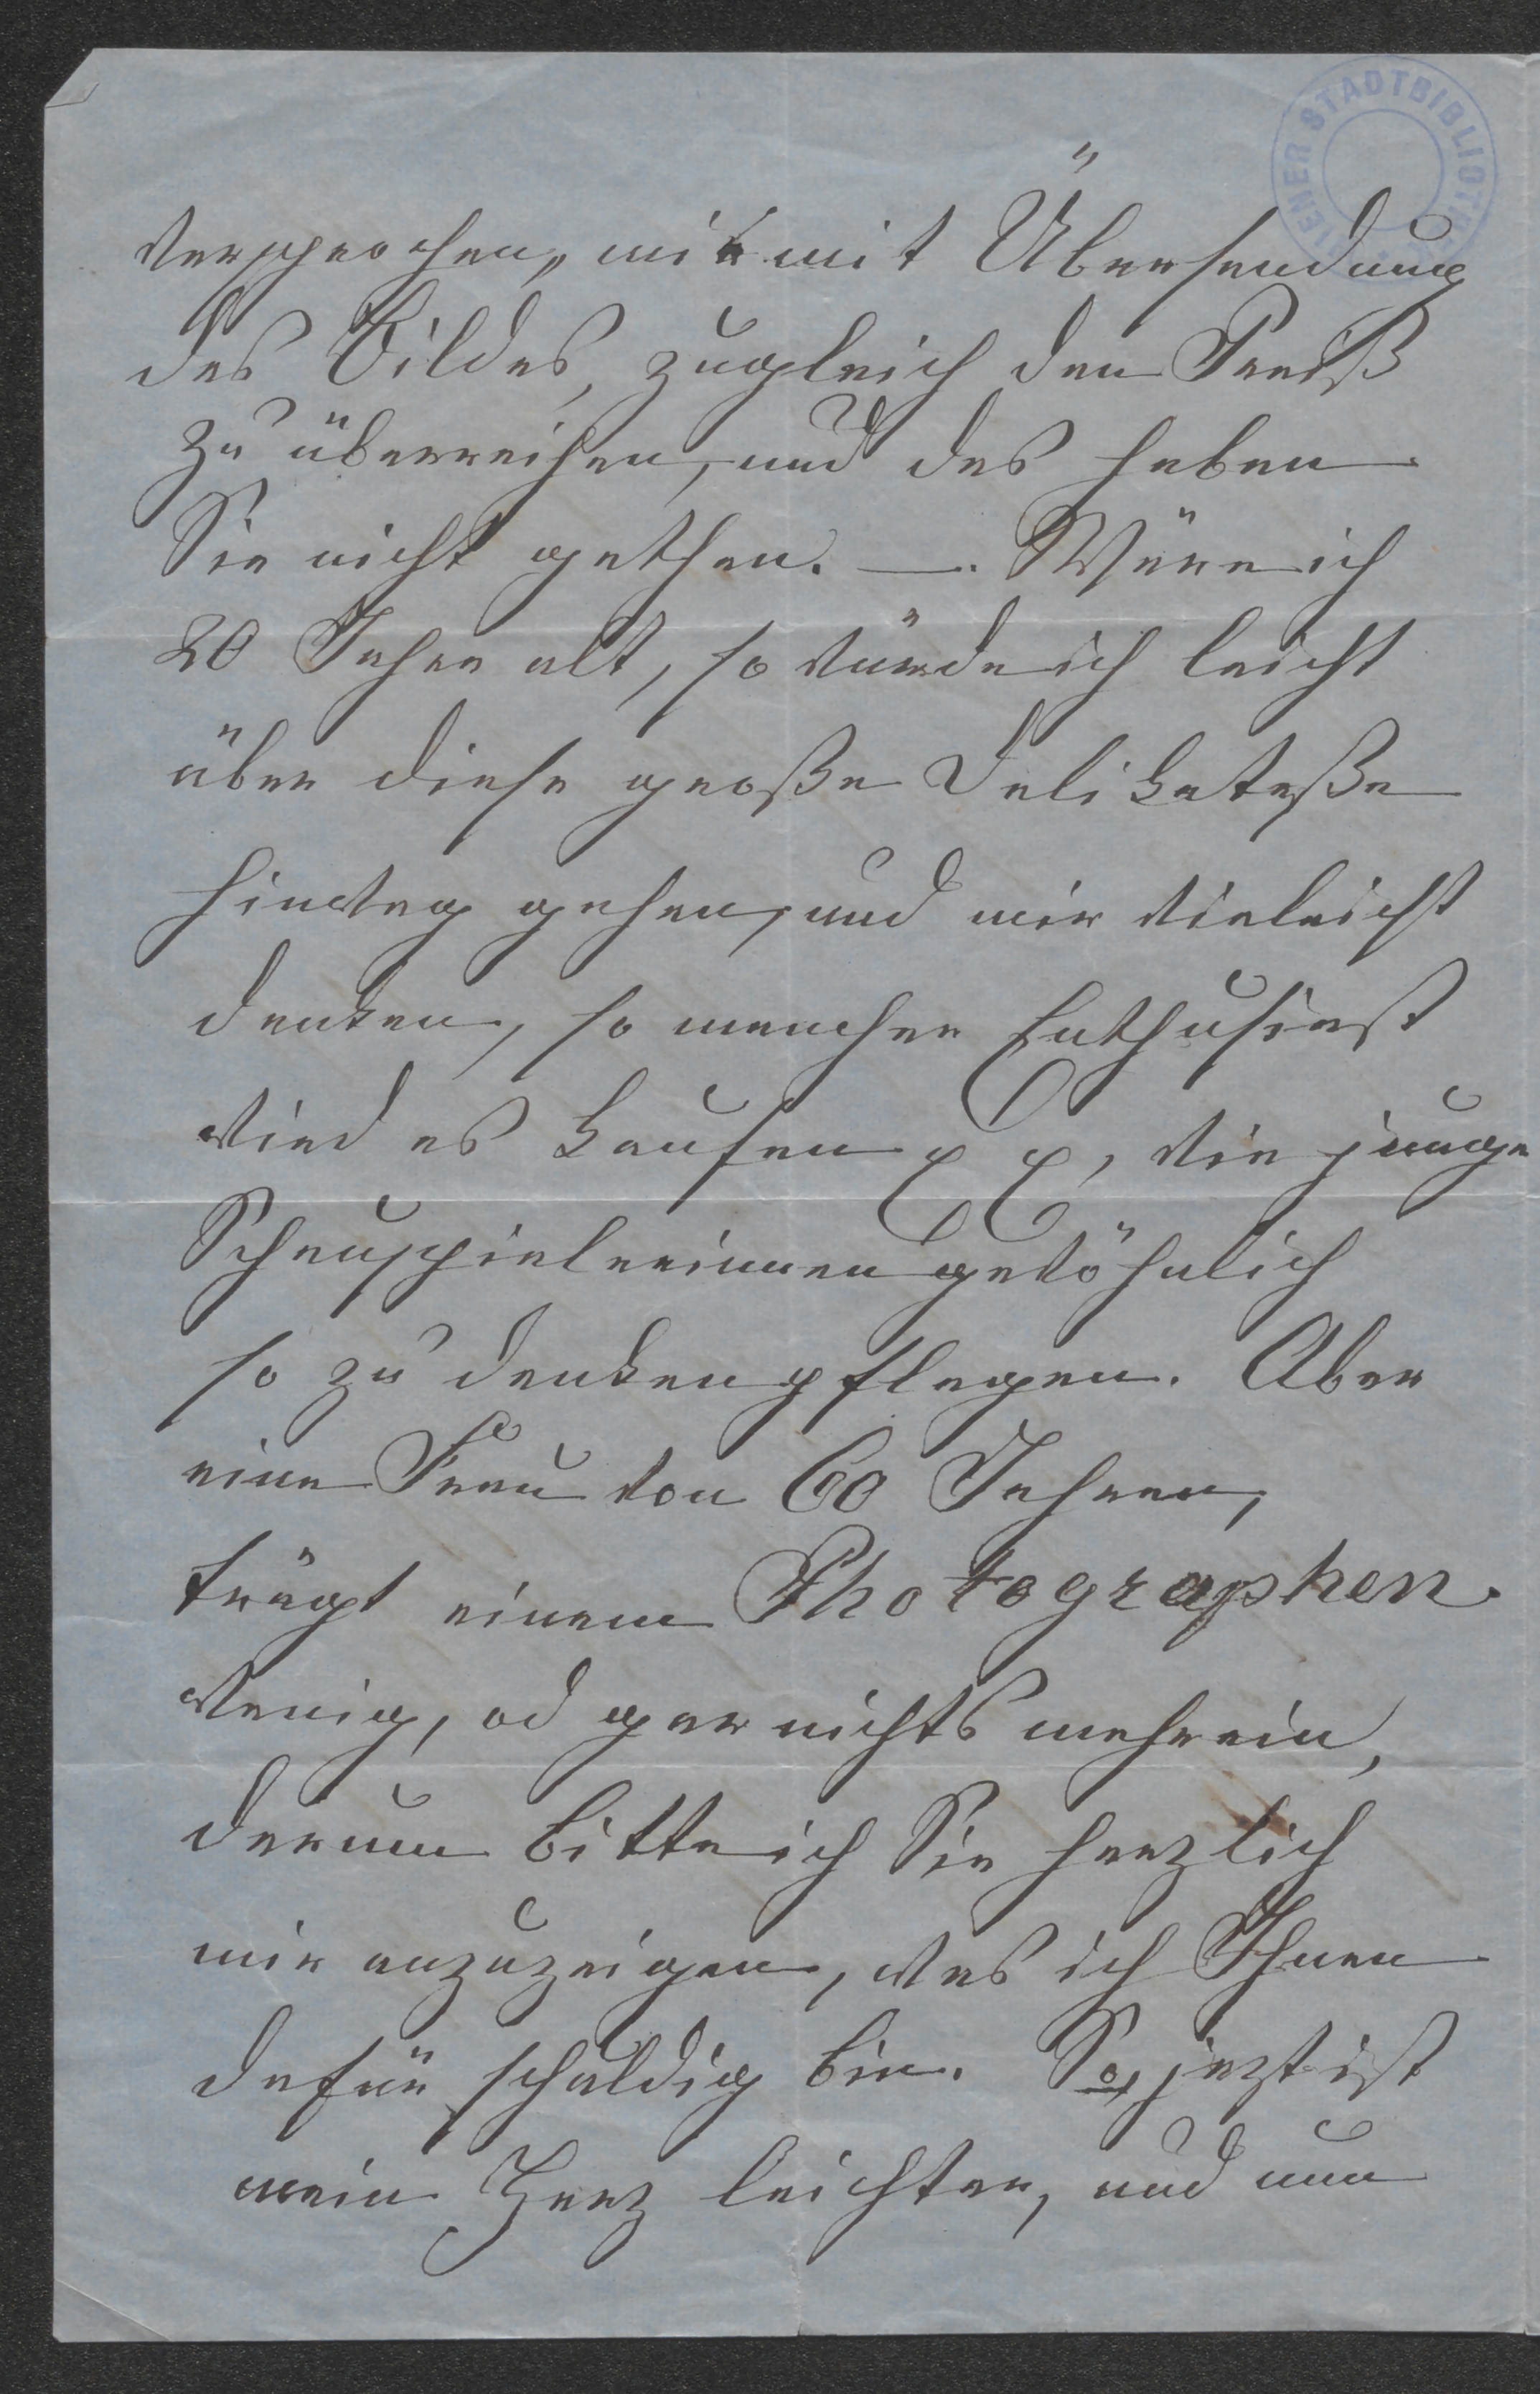 WIENER STADTBIBLIOTHEK
versprochen, mir mit Übersendung
des Bildes, zugleich den Preiß
zu überreichen, und das haben
Sie nicht gethan. —. Wäre ich
20 Jahre alt, so würde ich leicht
über diese große Delikateße
hinweg gehen, und mir vieleicht
denken, so mancher Enthusiast
wird es kaufen
wie junge
Schauspielerinnen gewöhnlich
so zu denken pflegen. Aber
eine Frau von 60 Jahren,
trägt einem Photographen
wenig, od gar nichts mehr ein,
darum bitte ich Sie herzlich
mir anzuzeigen, was ich Ihnen
dafür schuldig bin. So, jezt ist
mein Herz leichter, und nun